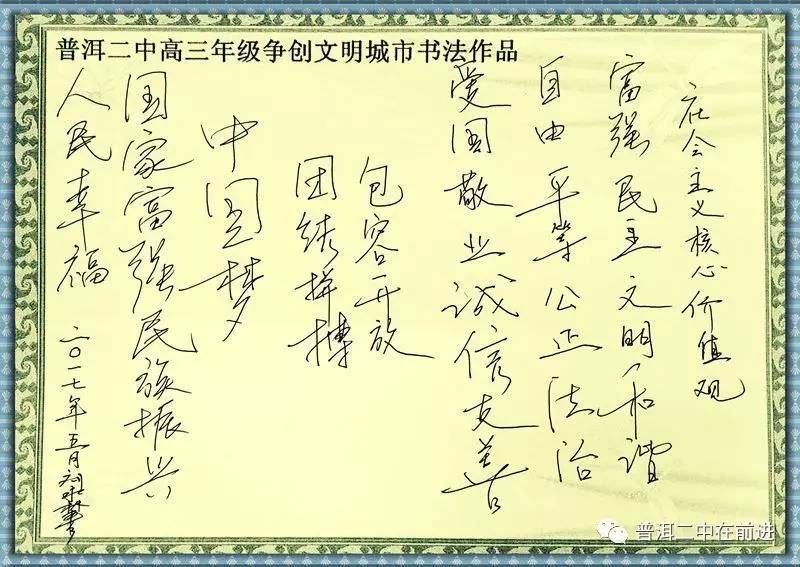 普洱二中高三年级争创文明城市书法作品
社会主义核心价值观
富强民主文明和谐
自由平等公正法治
爱国敬业诚信友善
包容开放
团结拼搏
中国梦
国家富强民族振兴
人民幸福
二〇一七年五月
普洱二中在前进